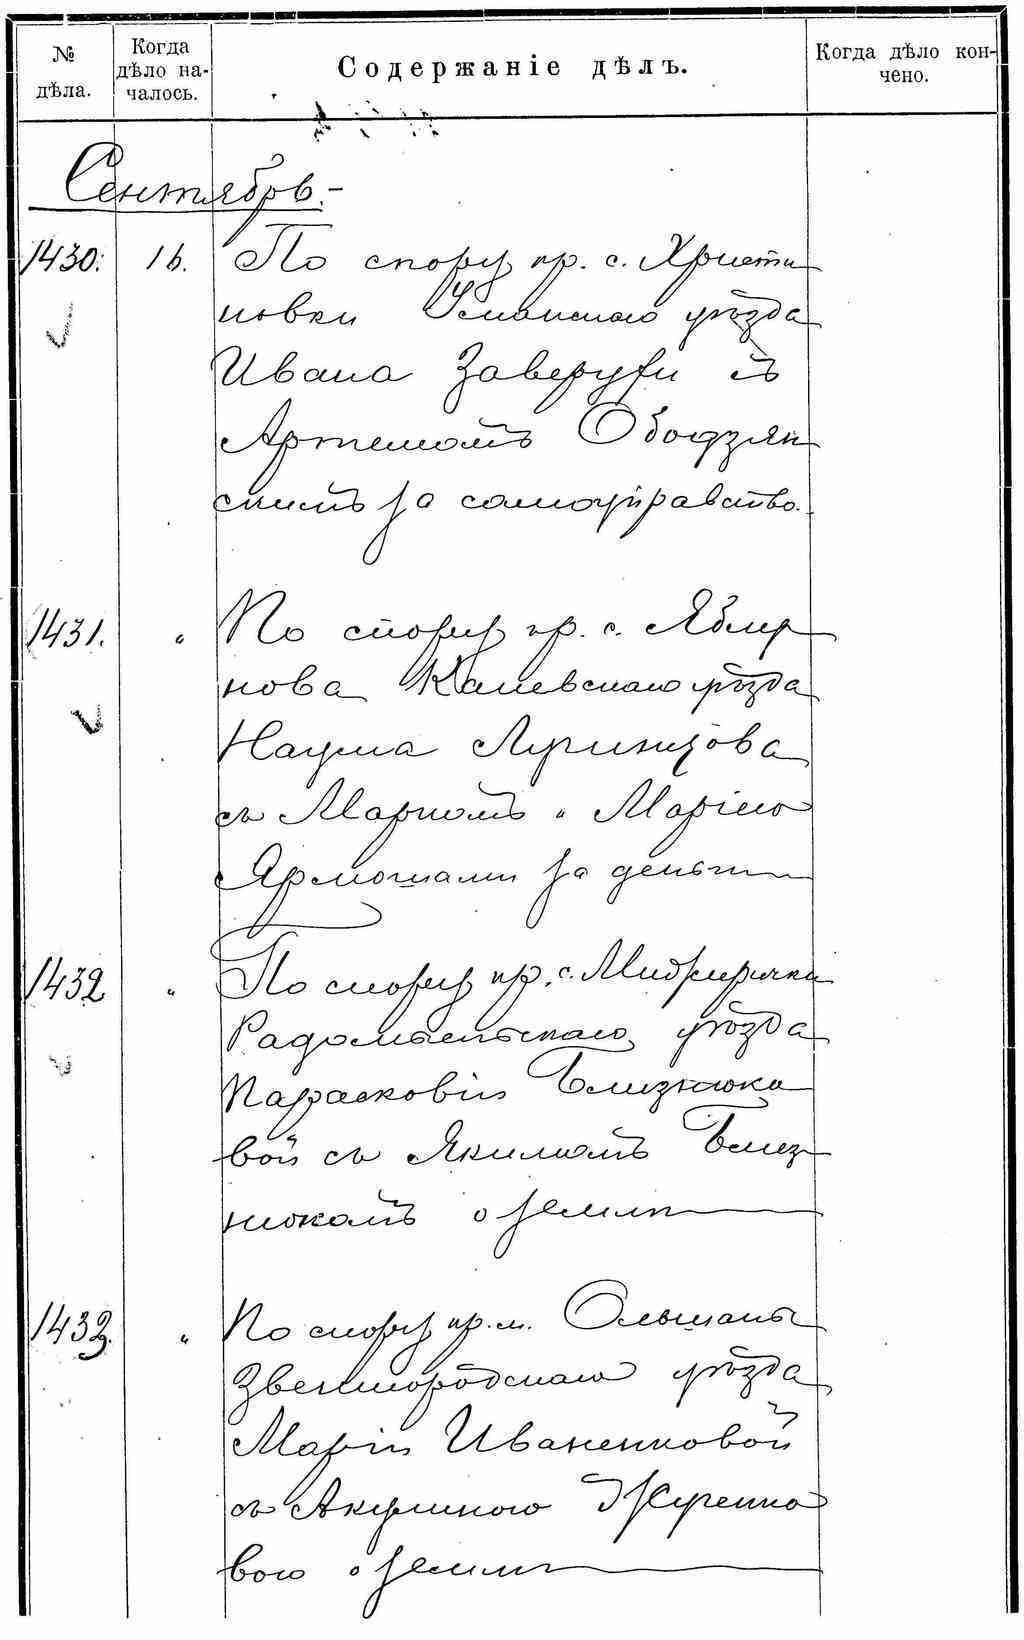 № дѣла.
Когда дѣло на-
чалось.
Содержаніе дѣлъ.
Когда дѣло кон-
чено.
Сентябрь.-
1430. 16. По спору кр. с. Христи
новки Уманскаго уѣзда
Ивана Заверухи съ
Артемомъ Ободзян
скимъ за самоуправство.
1431. " По спору кр. с. Яблу
нова Каневскаго уѣзда
Наума
съ Маркомъ и Маріею
Ярмошами за деньги
1432 " По спору кр. с.
Радомысльскаго уѣзда
Парасковіи Близнюко
вой съ Якимомъ Близ
нюкомъ о землѣ
1433. " По спору кр. м. Ольшаны
Звенигородскаго уѣзда
Маріи Иваненковой
съ Акулиною Журенко
вою о землѣ